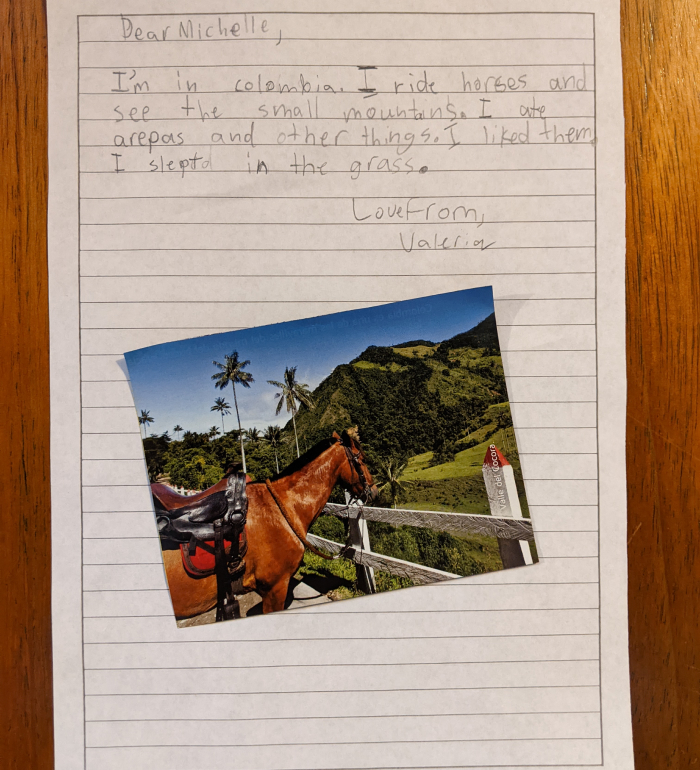 Dear Michelle,
I'm in colombia. I ride horses and
see the small mountains. I ate
arepas and other things. I liked them.
I sleptd in the grass.
Love From,
Valeria
Valle del Cocora